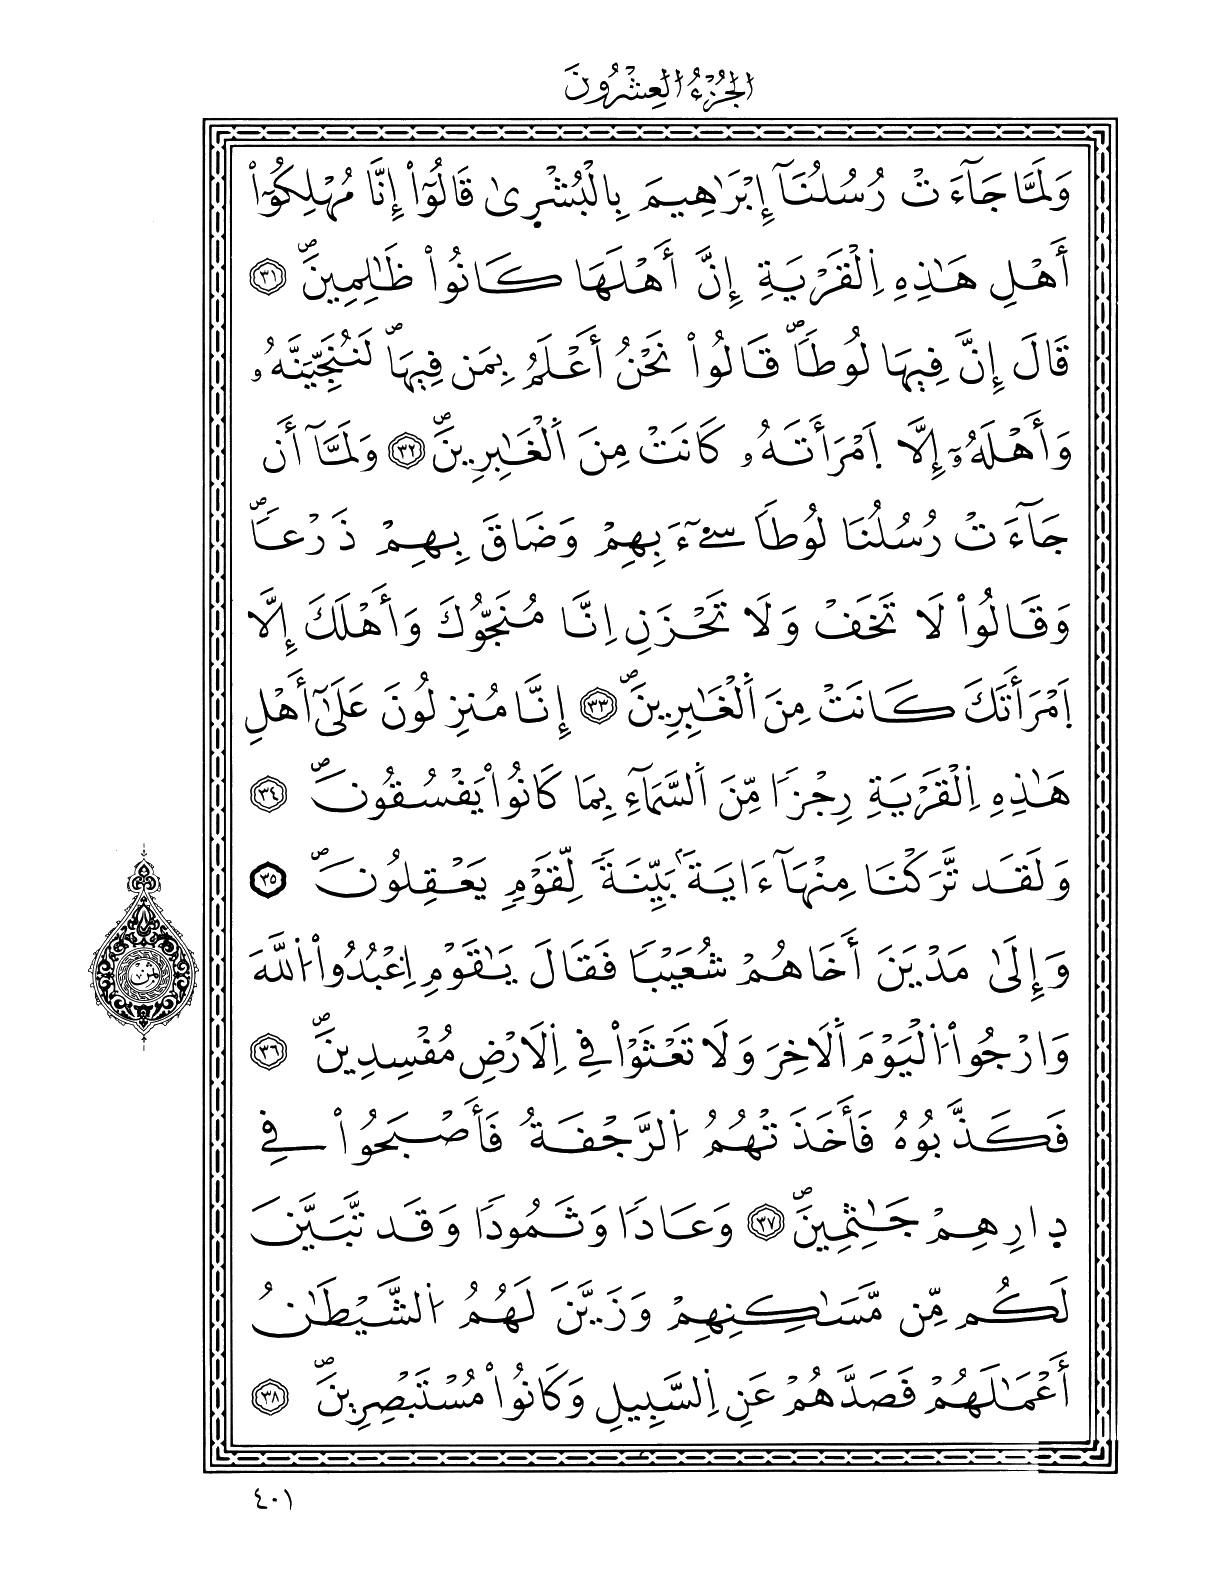 الجُزْءُ العِشْرُونَ
وَلَمَّا جَآءَتْ رُسُلُنَآ إِبْرَٰهِيمَ بِالْبُشْر۪ىٰ قَالُوٓاْ إِنَّا مُهْلِكُوٓاْ
أَهْلِ هَٰذِهِ اِ۬لْقَرْيَةِ إِنَّ أَهْلَهَا كَانُواْ ظَٰلِمِينَۖ ٣١
قَالَ إِنَّ فِيهَا لُوطاٗۖ قَالُواْ نَحْنُ أَعْلَمُ بِمَن فِيهَاۖ لَنُنَجِّيَنَّهُۥ
وَأَهْلَهُۥٓ إِلَّا اَ۪مْرَأَتَهُۥ كَانَتْ مِنَ اَ۬لْغَٰبِرِينَۖ ٣٢ وَلَمَّآ أَن
جَآءَتْ رُسُلُنَا لُوطاٗ سےٓءَ بِهِمْ وَضَاقَ بِهِمْ ذَرْعاٗۖ
وَقَالُواْ لَا تَخَفْ وَلَا تَحْزَنِ اِنَّا مُنَجُّوكَ وَأَهْلَكَ إِلَّا
اَ۪مْرَأَتَكَ كَانَتْ مِنَ اَ۬لْغَٰبِرِينَۖ ٣٣ إِنَّا مُنزِلُونَ عَلَىٰٓ أَهْلِ
هَٰذِهِ اِ۬لْقَرْيَةِ رِجْزاٗ مِّنَ اَ۬لسَّمَآءِ بِمَا كَانُواْ يَفْسُقُونَۖ ٣٤
وَلَقَد تَّرَكْنَا مِنْهَآ ءَايَةَۢ بَيِّنَةٗ لِّقَوْمٖ يَعْقِلُونَۖ ٣٥
وَإِلَىٰ مَدْيَنَ أَخَاهُمْ شُعَيْباٗ فَقَالَ يَٰقَوْمِ اِ۟عْبُدُواْ اُ۬للَّهَ
وَارْجُواْ اُ۬لْيَوْمَ اَ۬لَاخِرَ وَلَا تَعْثَوْاْ فِي اِ۬لَارْضِ مُفْسِدِينَۖ ٣٦
فَكَذَّبُوهُ فَأَخَذَتْهُمُ اُ۬لرَّجْفَةُ فَأَصْبَحُواْ فِي
د۪ارِهِمْ جَٰثِمِينَۖ ٣٧ وَعَاداٗ وَثَمُوداٗ وَقَد تَّبَيَّنَ
لَكُم مِّن مَّسَٰكِنِهِمْ وَزَيَّنَ لَهُمُ اُ۬لشَّيْطَٰنُ
أَعْمَٰلَهُمْ فَصَدَّهُمْ عَنِ اِ۬لسَّبِيلِ وَكَانُواْ مُسْتَبْصِرِينَۖ ٣٨
ثمن
٤٠١